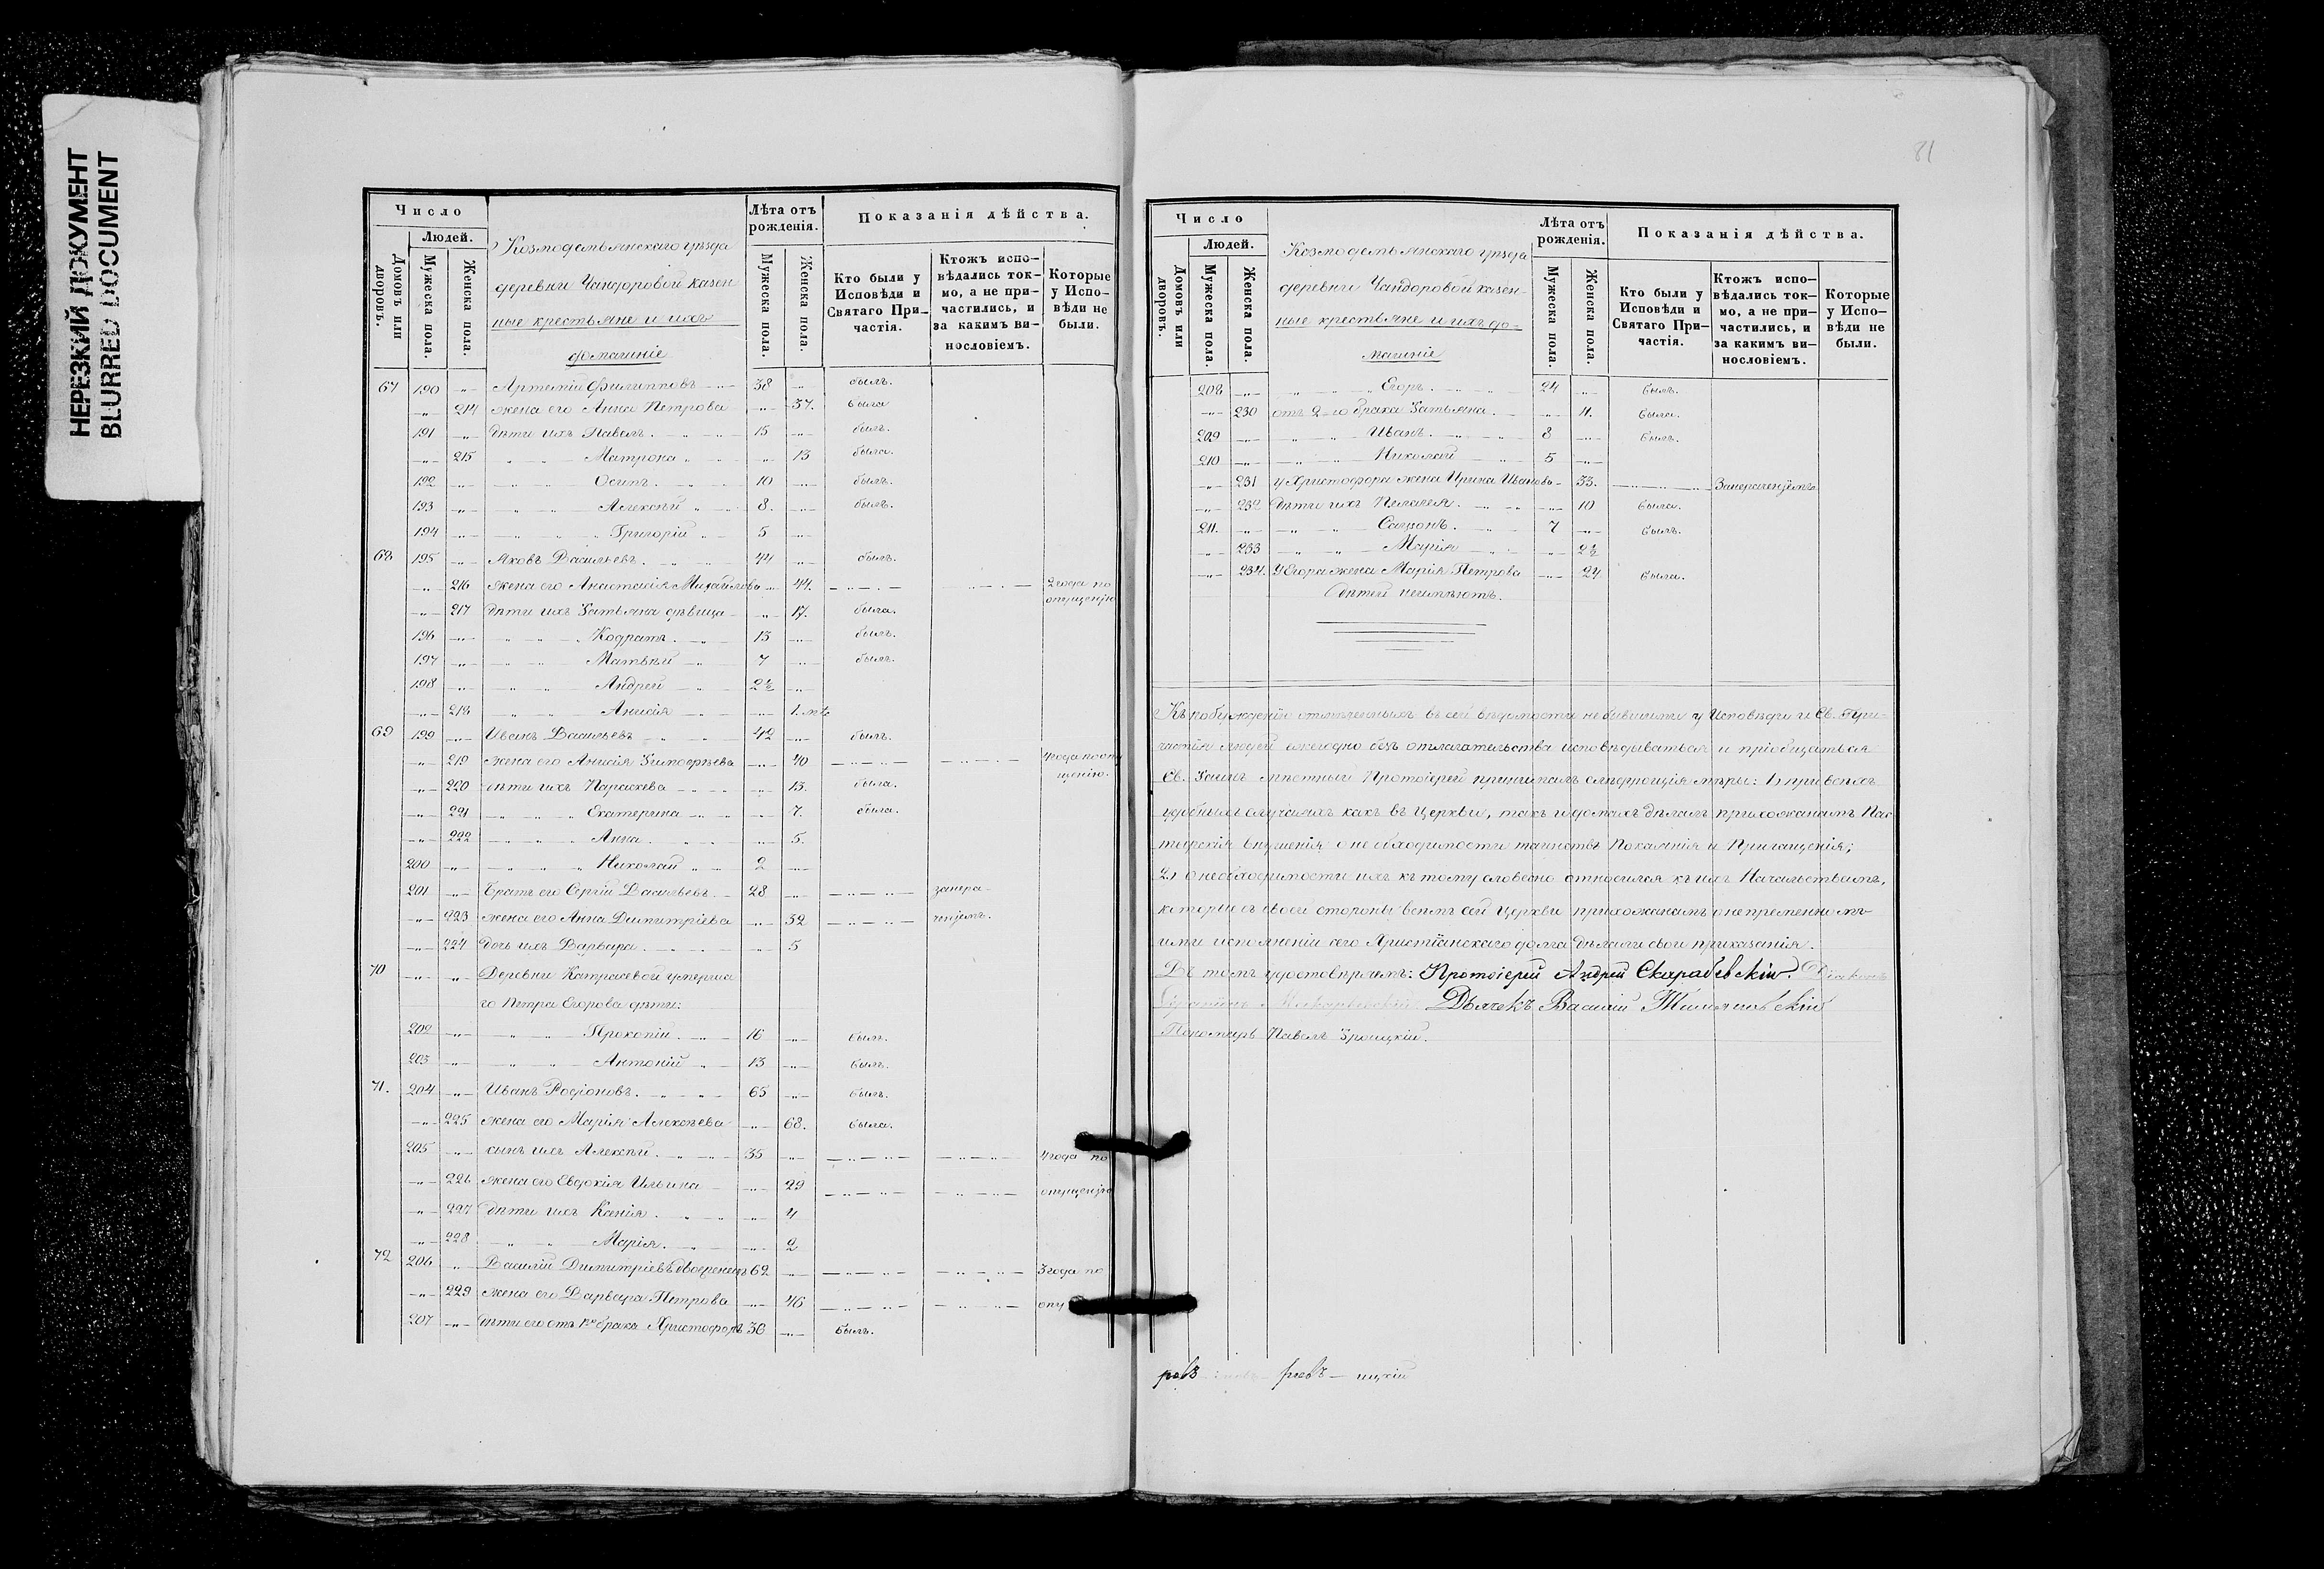 НЕРЕЗКИЙ ДОКУМЕНТ
BLURRED DOCUMENT
Число
Людей.
Домовъ или дворовъ.
Мужеска пола.
Женска пола.
Козмодемьянскаго уѣзда
деревни Чандоровой казен
ные крестьяне и ихъ
домашніе
Лѣта отъ рожденія.
Мужеска пола.
Женска пола.
Показанія дѣйства.
Кто были у Исповѣди и Святаго Причастія.
Ктожъ исповѣдались токмо, а не причастились, и за какимъ винословіемъ.
Которые у Исповѣди не были.
67 190 Артемій Филипповъ 38 былъ.
214 жена его Анна Петрова 37. была
191 дѣти ихъ Павелъ. 15 былъ.
215 Матрона 13 была.
192 Осипъ. 10 былъ.
193 Алексѣй 8. былъ.
194 Григорій 5
68 195 Яковъ Васильевъ. 44 былъ.
216 жена его Анастасія Михайлова 44. 2 года по опущенію
217 дѣти ихъ Татьяна дѣвица 17. была.
196 Кодратъ. 13 былъ.
197 Матвѣй 7 былъ.
198 Андрей 2½
218 Анисія 1.
69 199 Иванъ Васильевъ 42 былъ.
219 жена его Анисія Тимофѣева 40 4 года по опу
щенію.
220 дѣти ихъ Параскева 13. была.
221 Екатерина 7. была.
222 Анна. 5.
200 Николай 2
201 Братъ его Сергій Васильевъ. 28 запра
223 жена его Анна Димитріева 32
224 дочь ихъ Варвара. 5
70 Деревни Катрасевой умерша
го Петра Егорова дѣти:
202 Прокопій. 16 былъ.
203 Антоній 13 былъ.
71. 204 Иванъ Родіоновъ. 65 былъ.
225 жена его Марія Алексѣева 68. была.
205 сынъ ихъ Алексѣй. 35 4 года по
226 жена его Евдокія Ильина 29 опущенію
227 дѣти ихъ Ксенія. 4
228 Марія. 2
72 206 Василій Димитріевъ двоеженецъ 62 3 года по
229 жена его Варвара Петрова 46 опу
207 дѣти его отъ 1го брака Христофоръ 36 былъ.
81
Число
Людей.
Домовъ или дворовъ.
Мужеска пола.
Женска пола.
Козмодемьянскаго уѣзда
деревни Чандоровой казен-
ные крестьяне и ихъ до-
машніе
Лѣта отъ рожденія.
Мужеска пола.
Женска пола.
Показанія дѣйства.
Кто были у Исповѣди и Святаго Причастія.
Ктожъ исповѣдались токмо, а не причастились, и за какимъ винословіемъ.
Которые у Исповѣди не были.
208 Егоръ. 24 былъ.
230 отъ 2-го брака Татьяна. 11. была.
209 Иванъ. 8 былъ.
210 Николай 5
231 у Христофора жена Ирина Иванова 33.
232 дѣти ихъ Пелагея. 10 была.
211. Самсонъ. 7 былъ.
233 Марія 2½
234. У Егора жена Марія Петрова 24 была.
дѣтей неимѣютъ.
Къ побужденію отмѣченныхъ въ сей вѣдомости небывшими у Исповѣди и Св. При-
частія людей ежегодно безъ отлагательства исповѣдываться и пріобщаться
Св. Таинъ мѣстный Протоіерей принималъ слѣдующія мѣры: 1) при всѣхъ
удобныхъ случаяхъ какъ въ Церкви, такъ и домахъ дѣлалъ прихожанамъ Пас
тырскія внушенія о необходимости таинствъ Покаянія и Причащенія;
2) о необходимости ихъ къ тому словесно относился къ ихъ Начальствамъ,
которые съ своей стороны всѣмъ сей Церкви прихожанамъ о непремѣнномъ
ими исполненіи сего Христіанскаго долга дѣлали свои приказанія.
Въ томъ удостовѣряемъ: Протоіерей Андрей Скарабевскій. Діаконъ
Дьячекъ Василій
Пономарь Павелъ Троицкій.
ревъ ревъ — ицкій